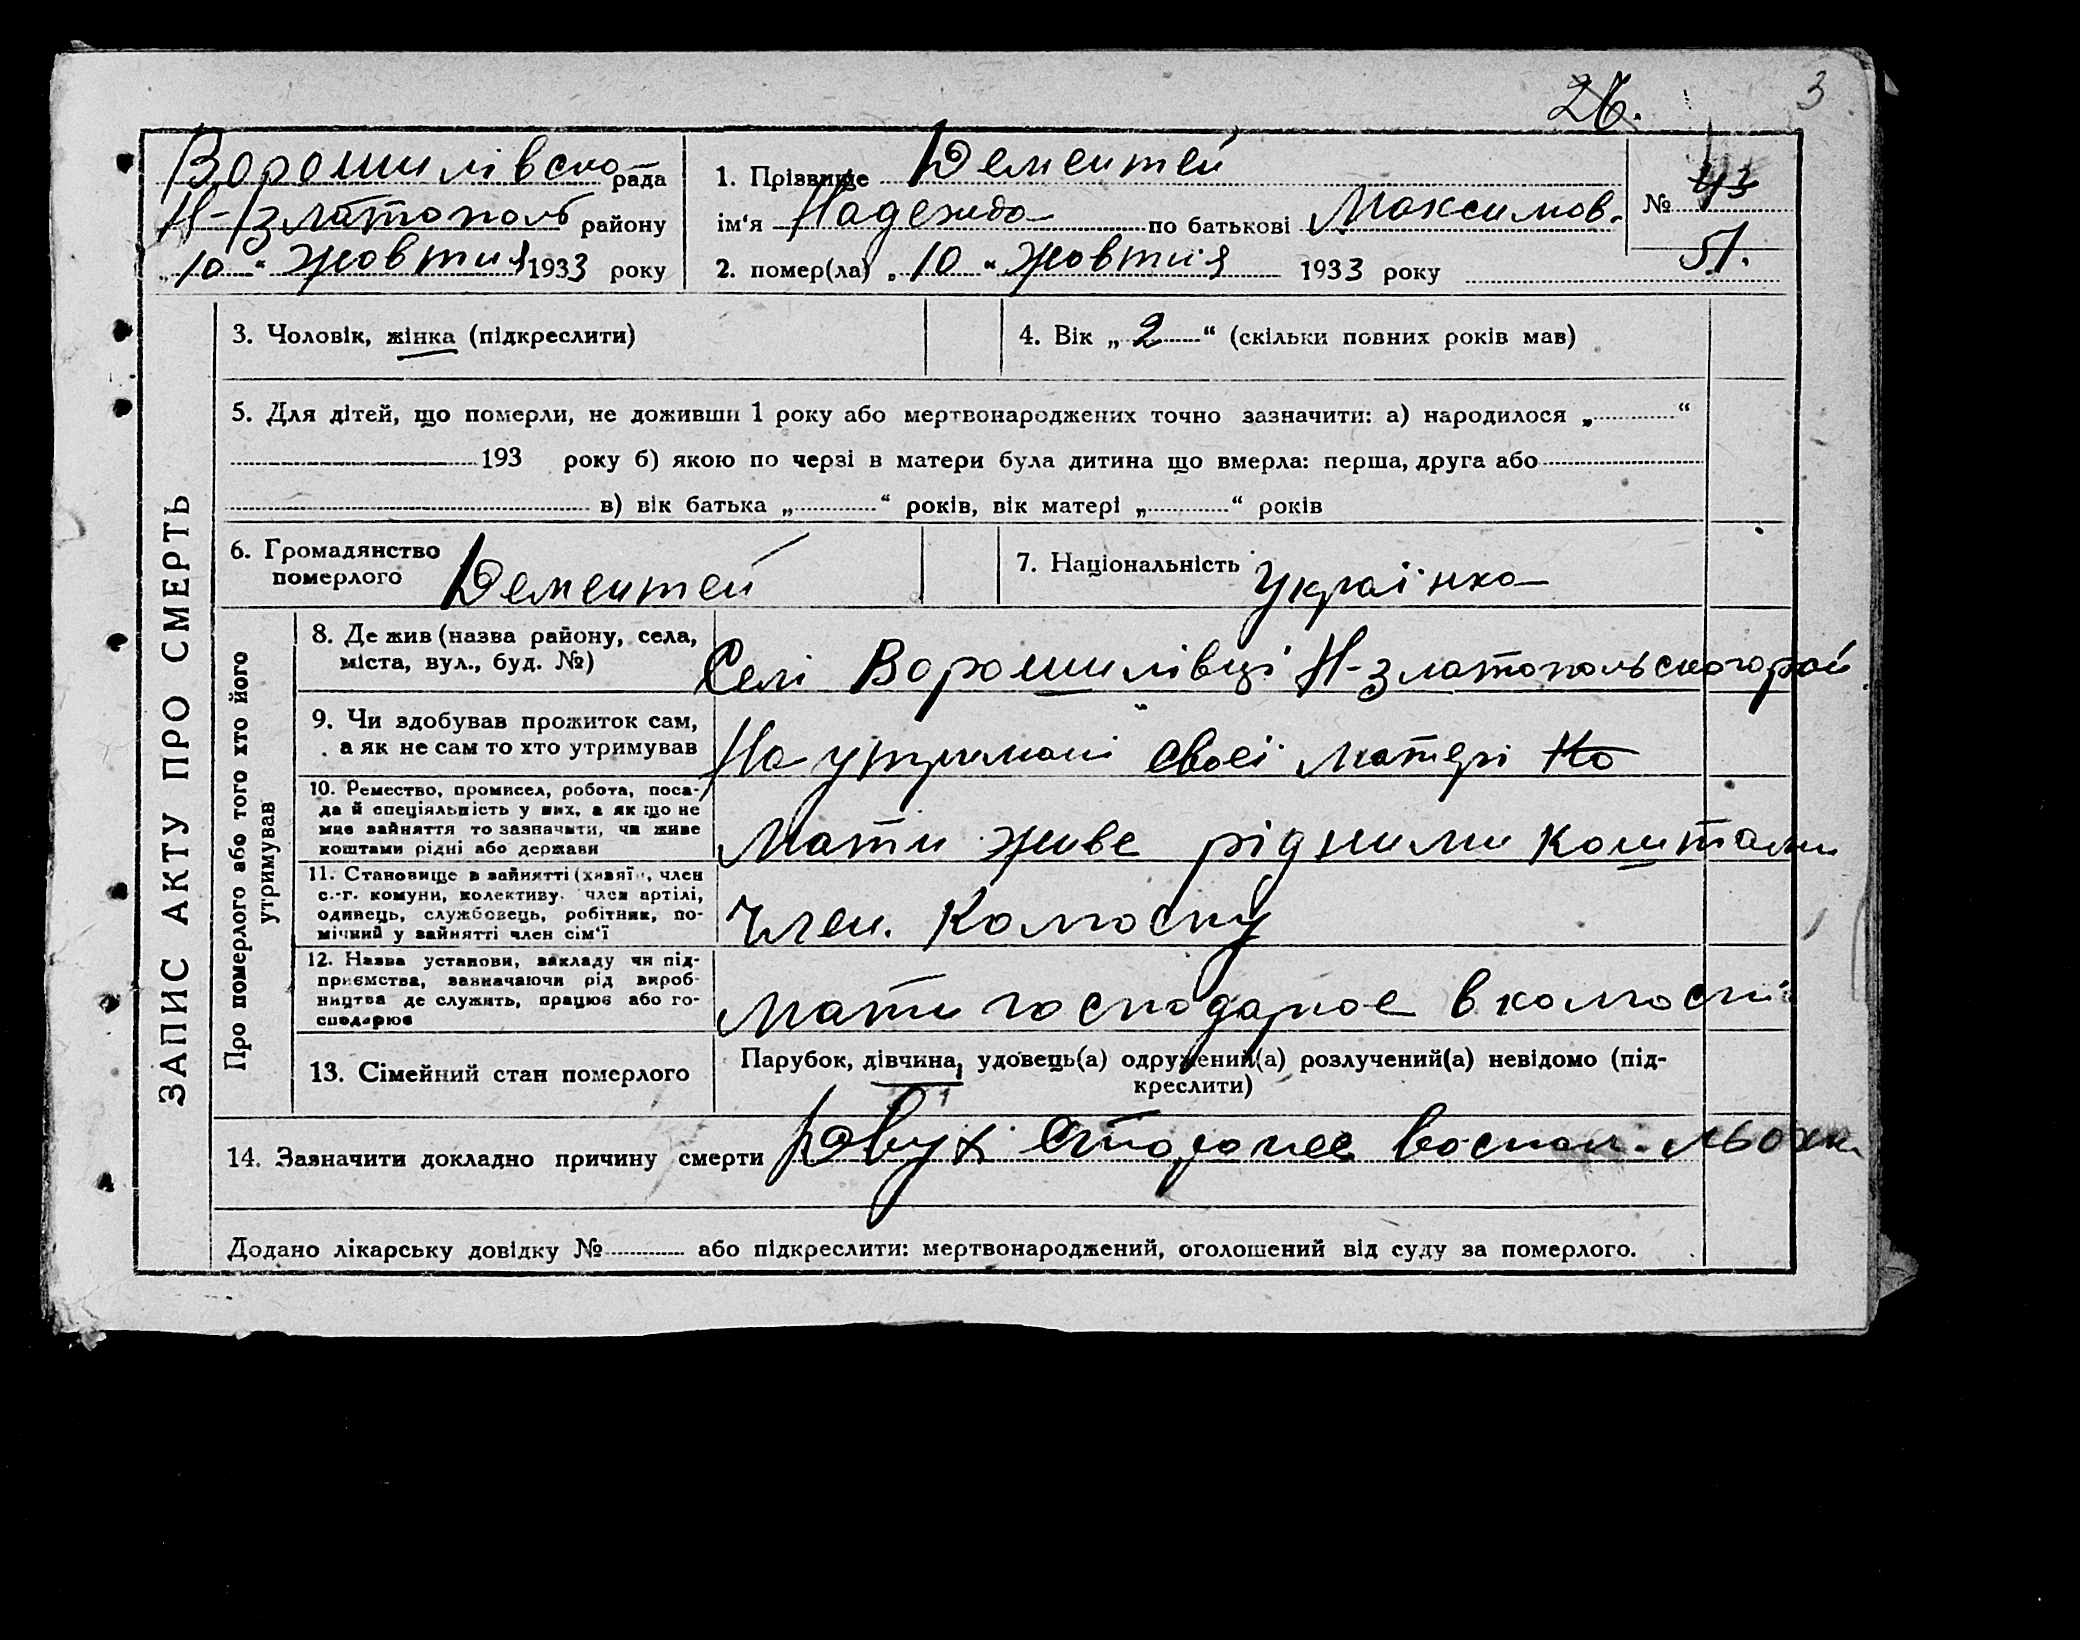 26. 3
Ворошилівсько рада
Н-Златополь району
„10“ жовтня 1933 року
1. Прізвище Дементей
ім'я Надежда по батькові Максимов.
2. помер(ла) „10“ жовтня 1933 року
№ 43
51.
3. Чоловік, жінка (підкреслити)
4. Вік „2“ (скільки повних років мав)
5. Для дітей, що померли, не доживши 1 року або мертвонароджених точно зазначити: а) народилося „ “
193 року б) якою по черзі в матери була дитина що вмерла: перша, друга або
в) вік батька „ “ років, вік матері „ “ років
6. Громадянство
померлого Дементей
7. Національність Українка
ЗАПИС АКТУ ПРО СМЕРТЬ
Про померлого або того хто його
утримував
8. Де жив (назва району, села,
міста, вул., буд. №)
Селі Ворошилівці Н-Златопольського рай
9. Чи здобував прожиток сам,
а як не сам то хто утримував
На утримані своєї матері На
10. Ремество, промисел, робота, поса-
да й спеціяльність у них, а як що не
мав зайняття то зазначити, чи живе
коштами рідні або держави
Мати живе рідними коштами
11. Становище в зайнятті (хазяїн, член
с.-г. комуни, колективу, член артілі,
одинець, службовець, робітник, по-
мічний у зайнятті член сім'ї
Член. Колгоспу
12. Назва установи, закладу чи під-
приємства, зазначаючи рід вироб-
ництва де служить, працює або го-
сподарює
Мати господарює в колгоспі
13. Сімейний стан померлого
Парубок, дівчина, удовець(а) одружений(а) розлучений(а) невідомо (під-
креслити)
14. Зазначити докладно причину смерти Двух стороннее воспал. льохк.
Додано лікарську довідку № або підкреслити: мертвонароджений, оголошений від суду за померлого.